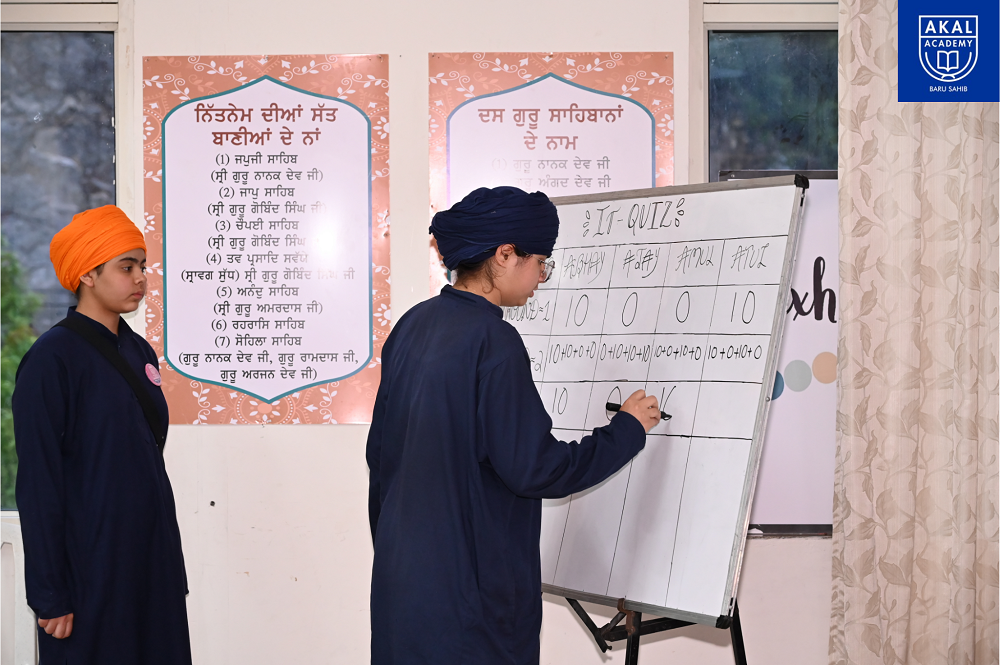 AKAL
ACADEMY
BARU SAHIB
ਨਿੱਤਨੇਮ ਦੀਆਂ ਸੱਤ
ਬਾਣੀਆਂ ਦੇ ਨਾਂ
(1) ਜਪੁਜੀ ਸਾਹਿਬ
(ਸ੍ਰੀ ਗੁਰੂ ਨਾਨਕ ਦੇਵ ਜੀ)
(2) ਜਾਪੁ ਸਾਹਿਬ
(ਸ੍ਰੀ ਗੁਰੂ ਗੋਬਿੰਦ ਸਿੰਘ ਜੀ
(3) ਚੌਪਈ ਸਾਹਿਬ
(ਸ੍ਰੀ ਗੁਰੂ ਗੋਬਿੰਦ ਸਿੰਘ
(4) ਤਵ ਪ੍ਰਸਾਦਿ ਸਵੱਯੇ
(ਸ੍ਰਾਵਗ ਸੁੱਧ) ਸ੍ਰੀ ਗੁਰੂ ਗੋਬਿੰਦ ਸਿੰਘ ਜੀ
(5) ਅਨੰਦੁ ਸਾਹਿਬ
(ਸ੍ਰੀ ਗੁਰੂ ਅਮਰਦਾਸ ਜੀ)
(6) ਰਹਰਾਸਿ ਸਾਹਿਬ
(7) ਸੋਹਿਲਾ ਸਾਹਿਬ
(ਗੁਰੂ ਨਾਨਕ ਦੇਵ ਜੀ, ਗੁਰੂ ਰਾਮਦਾਸ ਜੀ,
ਗੁਰੂ ਅਰਜਨ ਦੇਵ ਜੀ)
ਦਸ ਗੁਰੂ ਸਾਹਿਬਾਨਾਂ
ਦੇ ਨਾਮ
(1) ਗੁਰੂ ਨਾਨਕ ਦੇਵ ਜੀ
ਅੰਗਦ ਦੇਵ ਜੀ
IT-QUIZ
10 0 0 10
10+10+0+0 0+10+10+10 10+0+10+0 10+0+10+0
10
xh